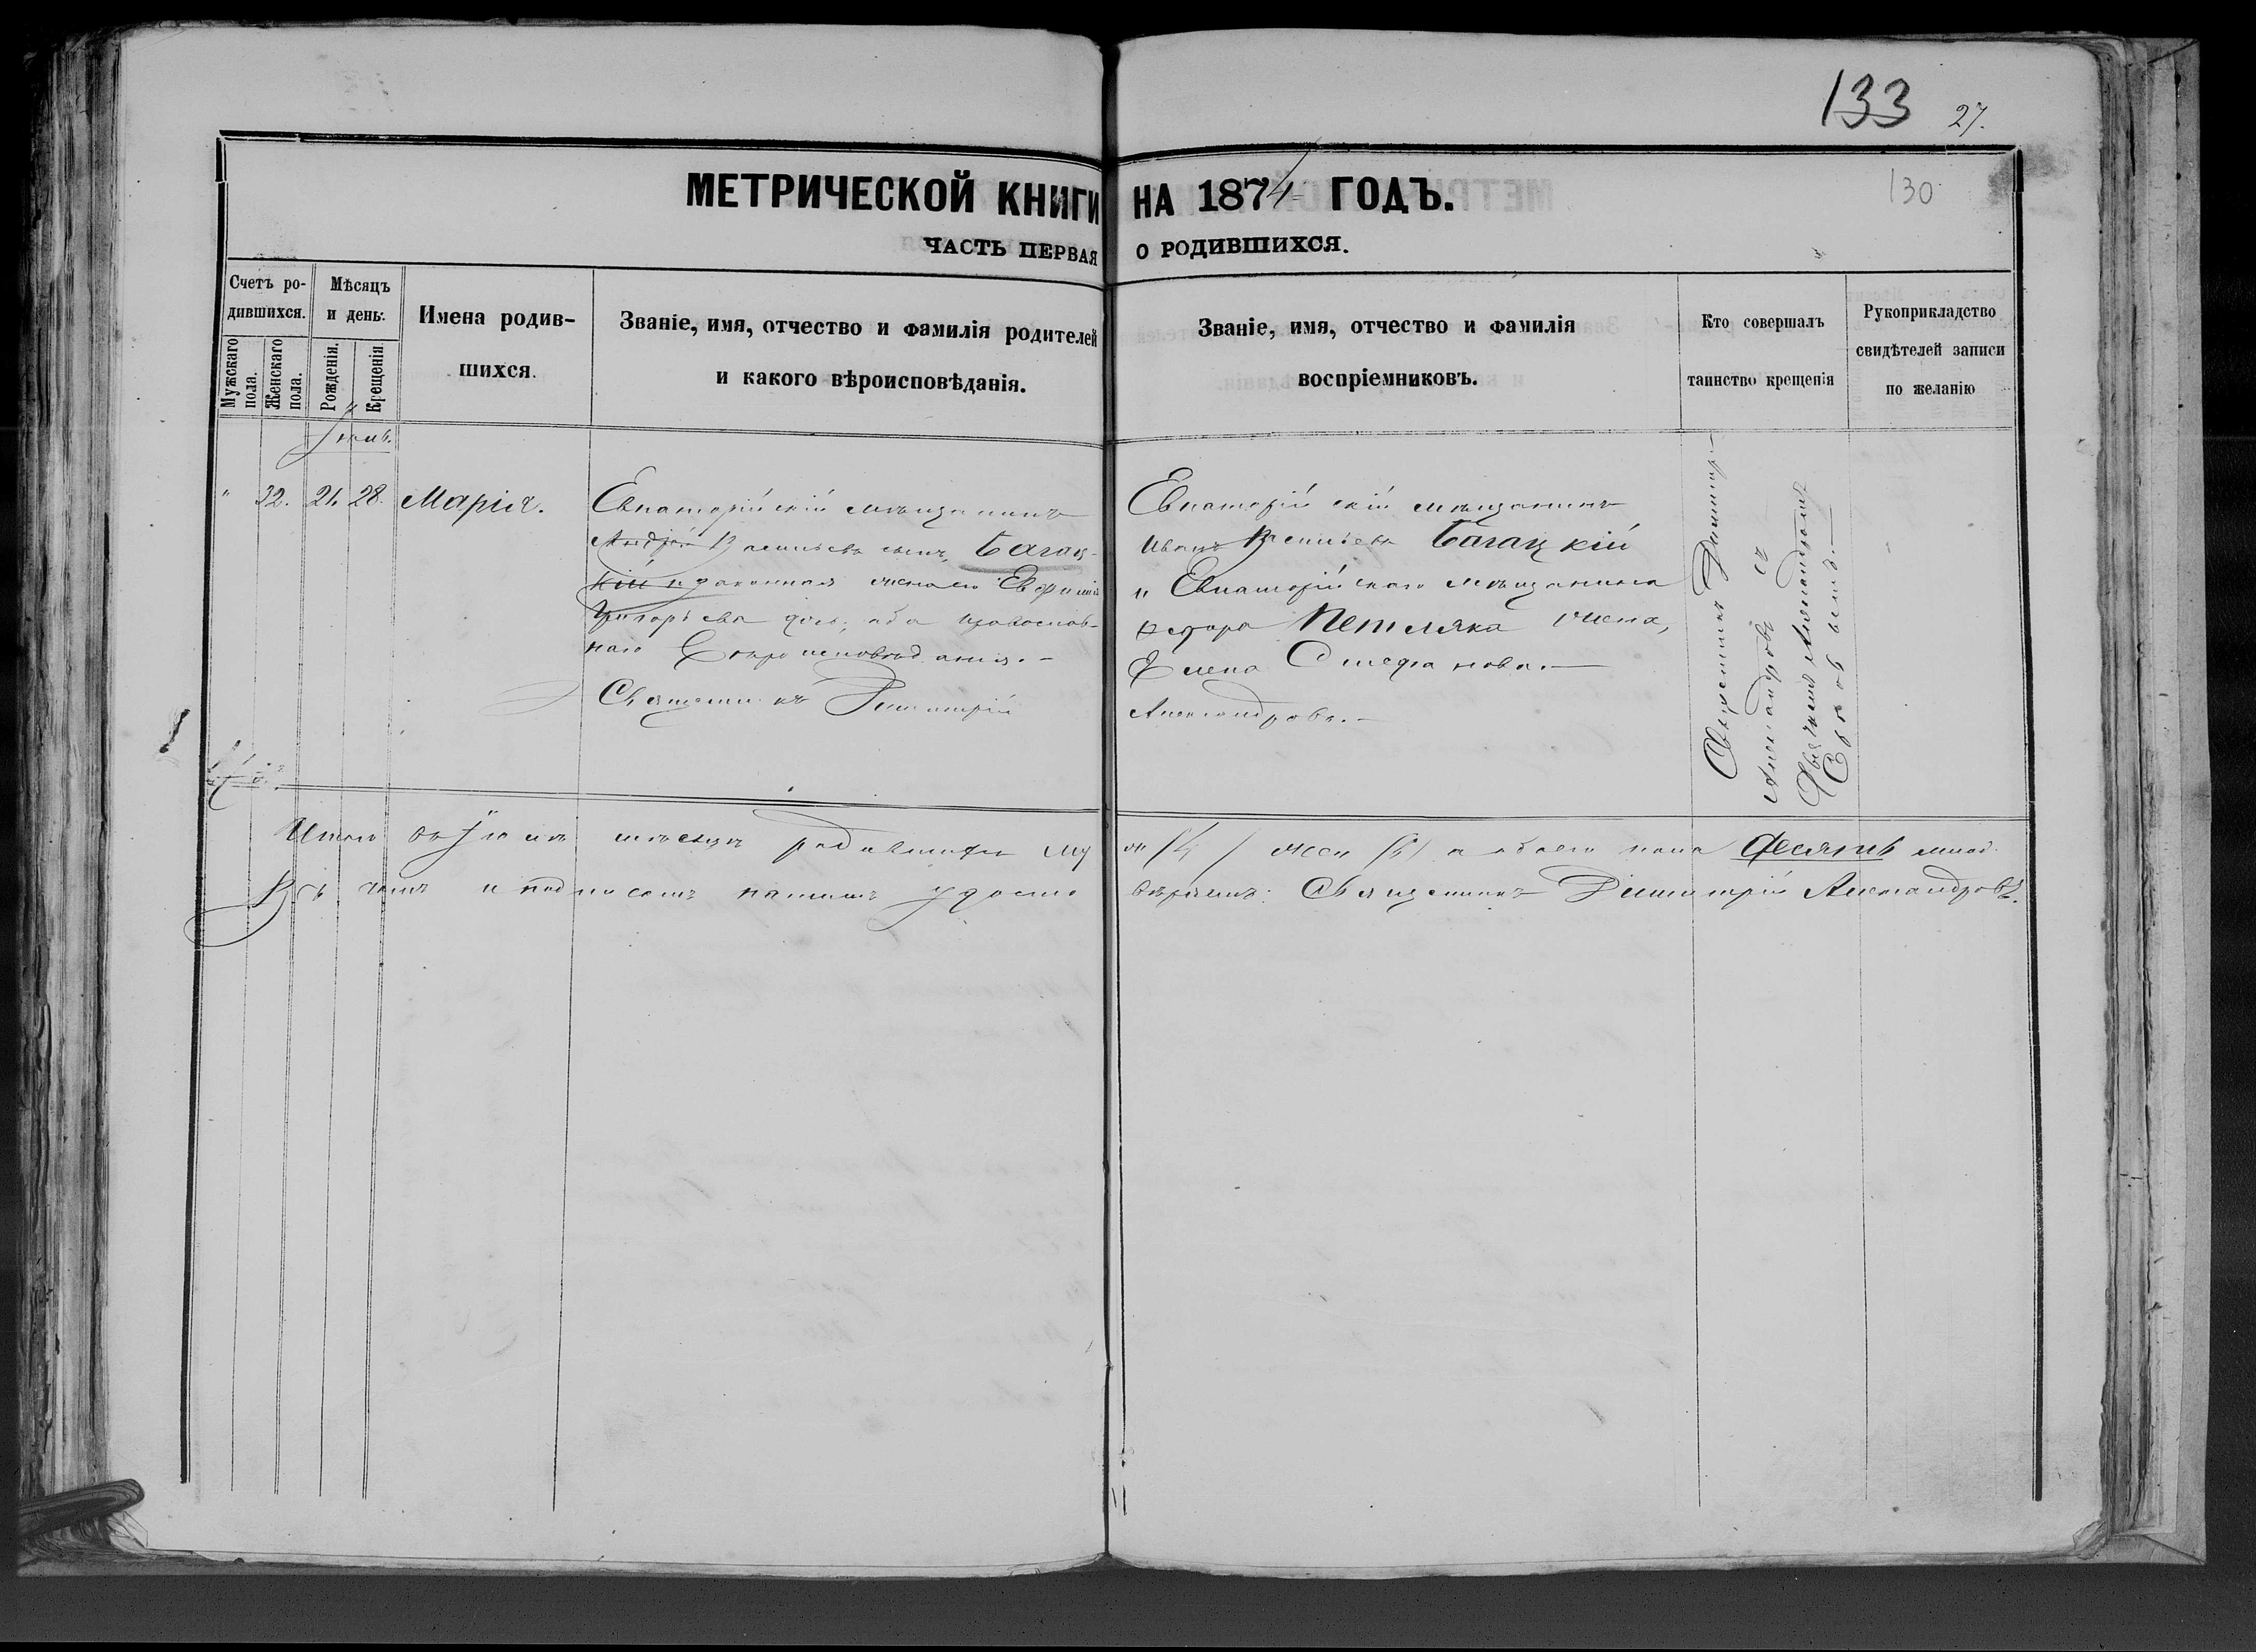 133 27.
130
МЕТРИЧЕСКОЙ КНИГИ НА 1874 ГОДЪ.
ЧАСТЬ ПЕРВАЯ О РОДИВШИХСЯ.
Счетъ ро-
дившихся.
Мужскаго пола.
Женскаго пола.
Мѣсяцъ
и день:
Рожденія.
Крещенія.
Имена родив-
шихся.
Званіе, имя, отчество и фамилія родителей
и какого вѣроисповѣданія.
Званіе, имя, отчество и фамилія
воспріемниковъ.
Кто совершалъ
таинство крещенія
Рукоприкладство
свидѣтелей записи
по желанію
" 32. 21. 28. Марія.
Евпаторійскій мѣщанинъ
Андрей Васильевъ сынъ, Багац-
кій и законная жена его Евфимія
Григорьева дочь, оба православ-
наго вѣроисповѣданія.-
Священникъ Димитрій
Евпаторійскій мѣщанинъ
Иванъ Васильевъ Багацкій
и Евпаторійскаго мѣщанина
Федора Петляка жена,
Елена Стефанова.-
Александровъ.-
Священникъ Димитр-
Александровъ съ
Итого въ Іюль мѣсяцѣ родившихся му м /4/ жен /6/ а обоего пола десять
Въ чемъ и подписомъ нашимъ удосто вѣряемъ: Священникъ Димитрій Александровъ.